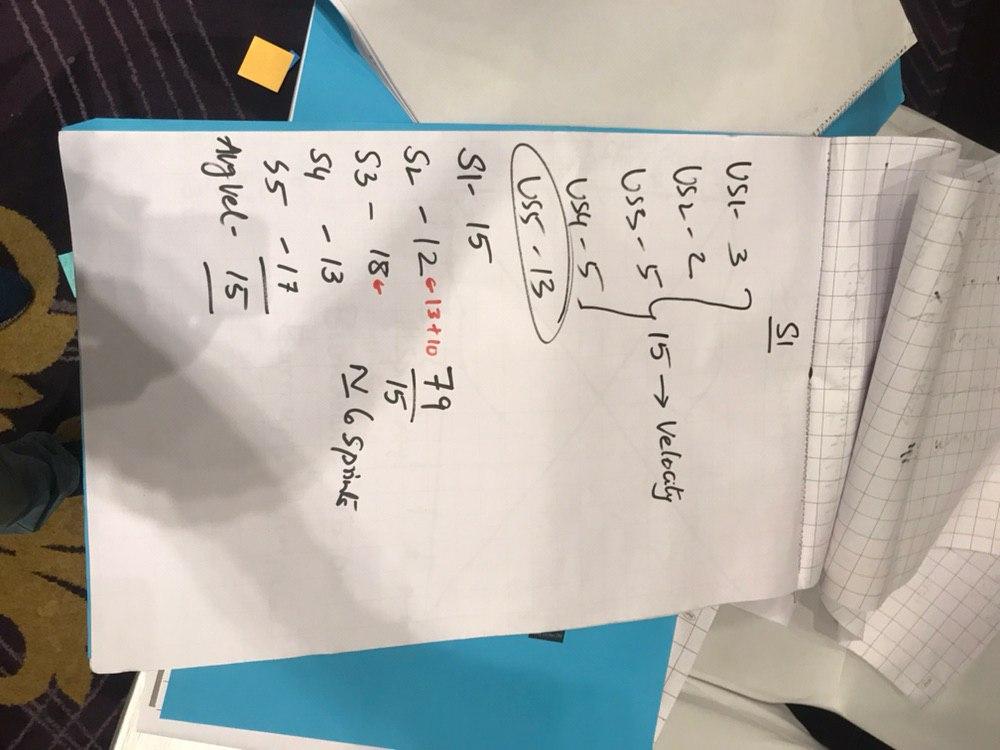 S1
US1- 3
US2 - 2
US3 - 5
15 → Velocity
US4 - 5
US5 - 13
S1- 15
S2 - 12 ← 13+10
S3 - 18 ←
S4 - 13
S5 - 17
Avg Vel - 15
79
15
≃ 6 Sprints